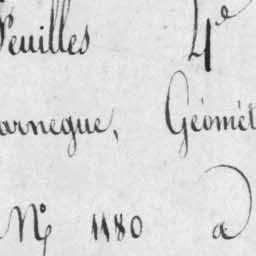 Feuilles 4e
arnegue, Géomét
No 1180 a